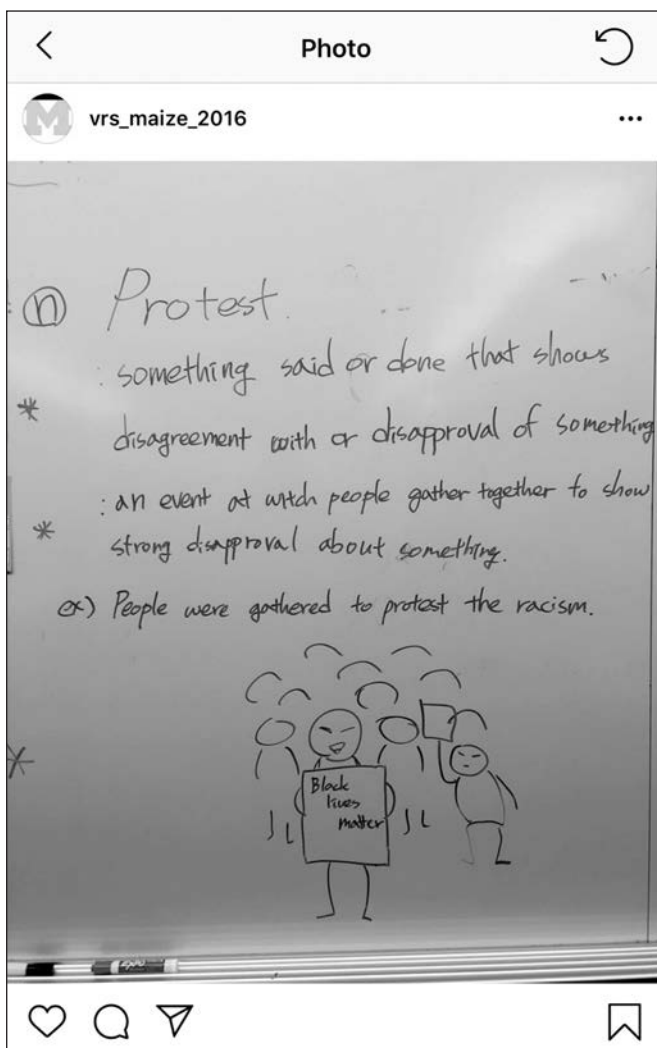 Photo
M
vrs_maize_2016
: ⓝ Protest.
: something said or done that shows
* disagreement with or disapproval of something
: an event at witch people gather together to show
* strong disapproval about something.
ex) People were gathered to protest the racism.
*
Black
lives
matter
EXPO